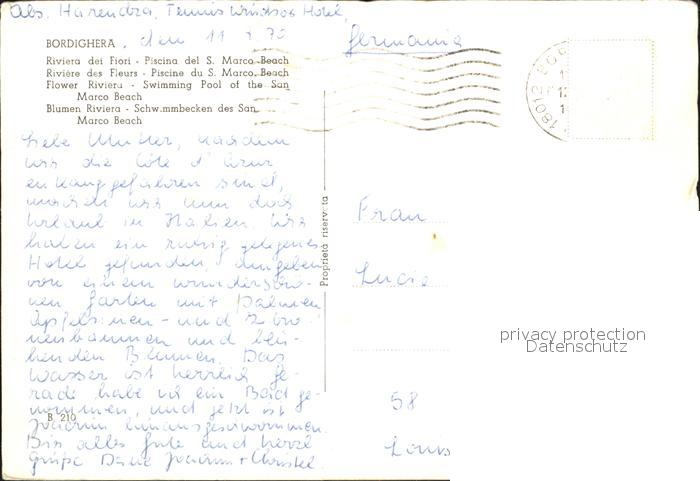 Abs. Harendza, Tennis Windsor Hotel,
BORDIGHERA, den 11 70
Germania
Riviera dei Fiori - Piscina del S. Marco Beach
Rivière des Fleurs - Piscine du S. Marco Beach
Flower Riviera - Swimming Pool of the San
Marco Beach
Blumen Riviera - Schwimmbecken des San
Marco Beach
18012 BOR
Liebe Mutter, nachdem
wir die Côte d'Azur
entlanggefahren sind,
machen wir nun doch
Urlaub in Italien. Wir
haben ein ruhig gelegenes
Hotel gefunden, umgeben
von einem wunderschö-
nen Garten mit Palmen
Apfelsinen- und Zitro-
nenbäumen und blü-
henden Blumen. Das
Wasser ist herrlich. Ge-
rade habe ich ein Bad ge-
nommen, und jetzt ist
Joachim hinausgeschwommen.
Bis alles Gute und herzl.
Grüße Deine Joachim + Christel.
B. 210
Proprietà riservata
Frau
Lucie
58
Louis
privacy protection
Datenschutz